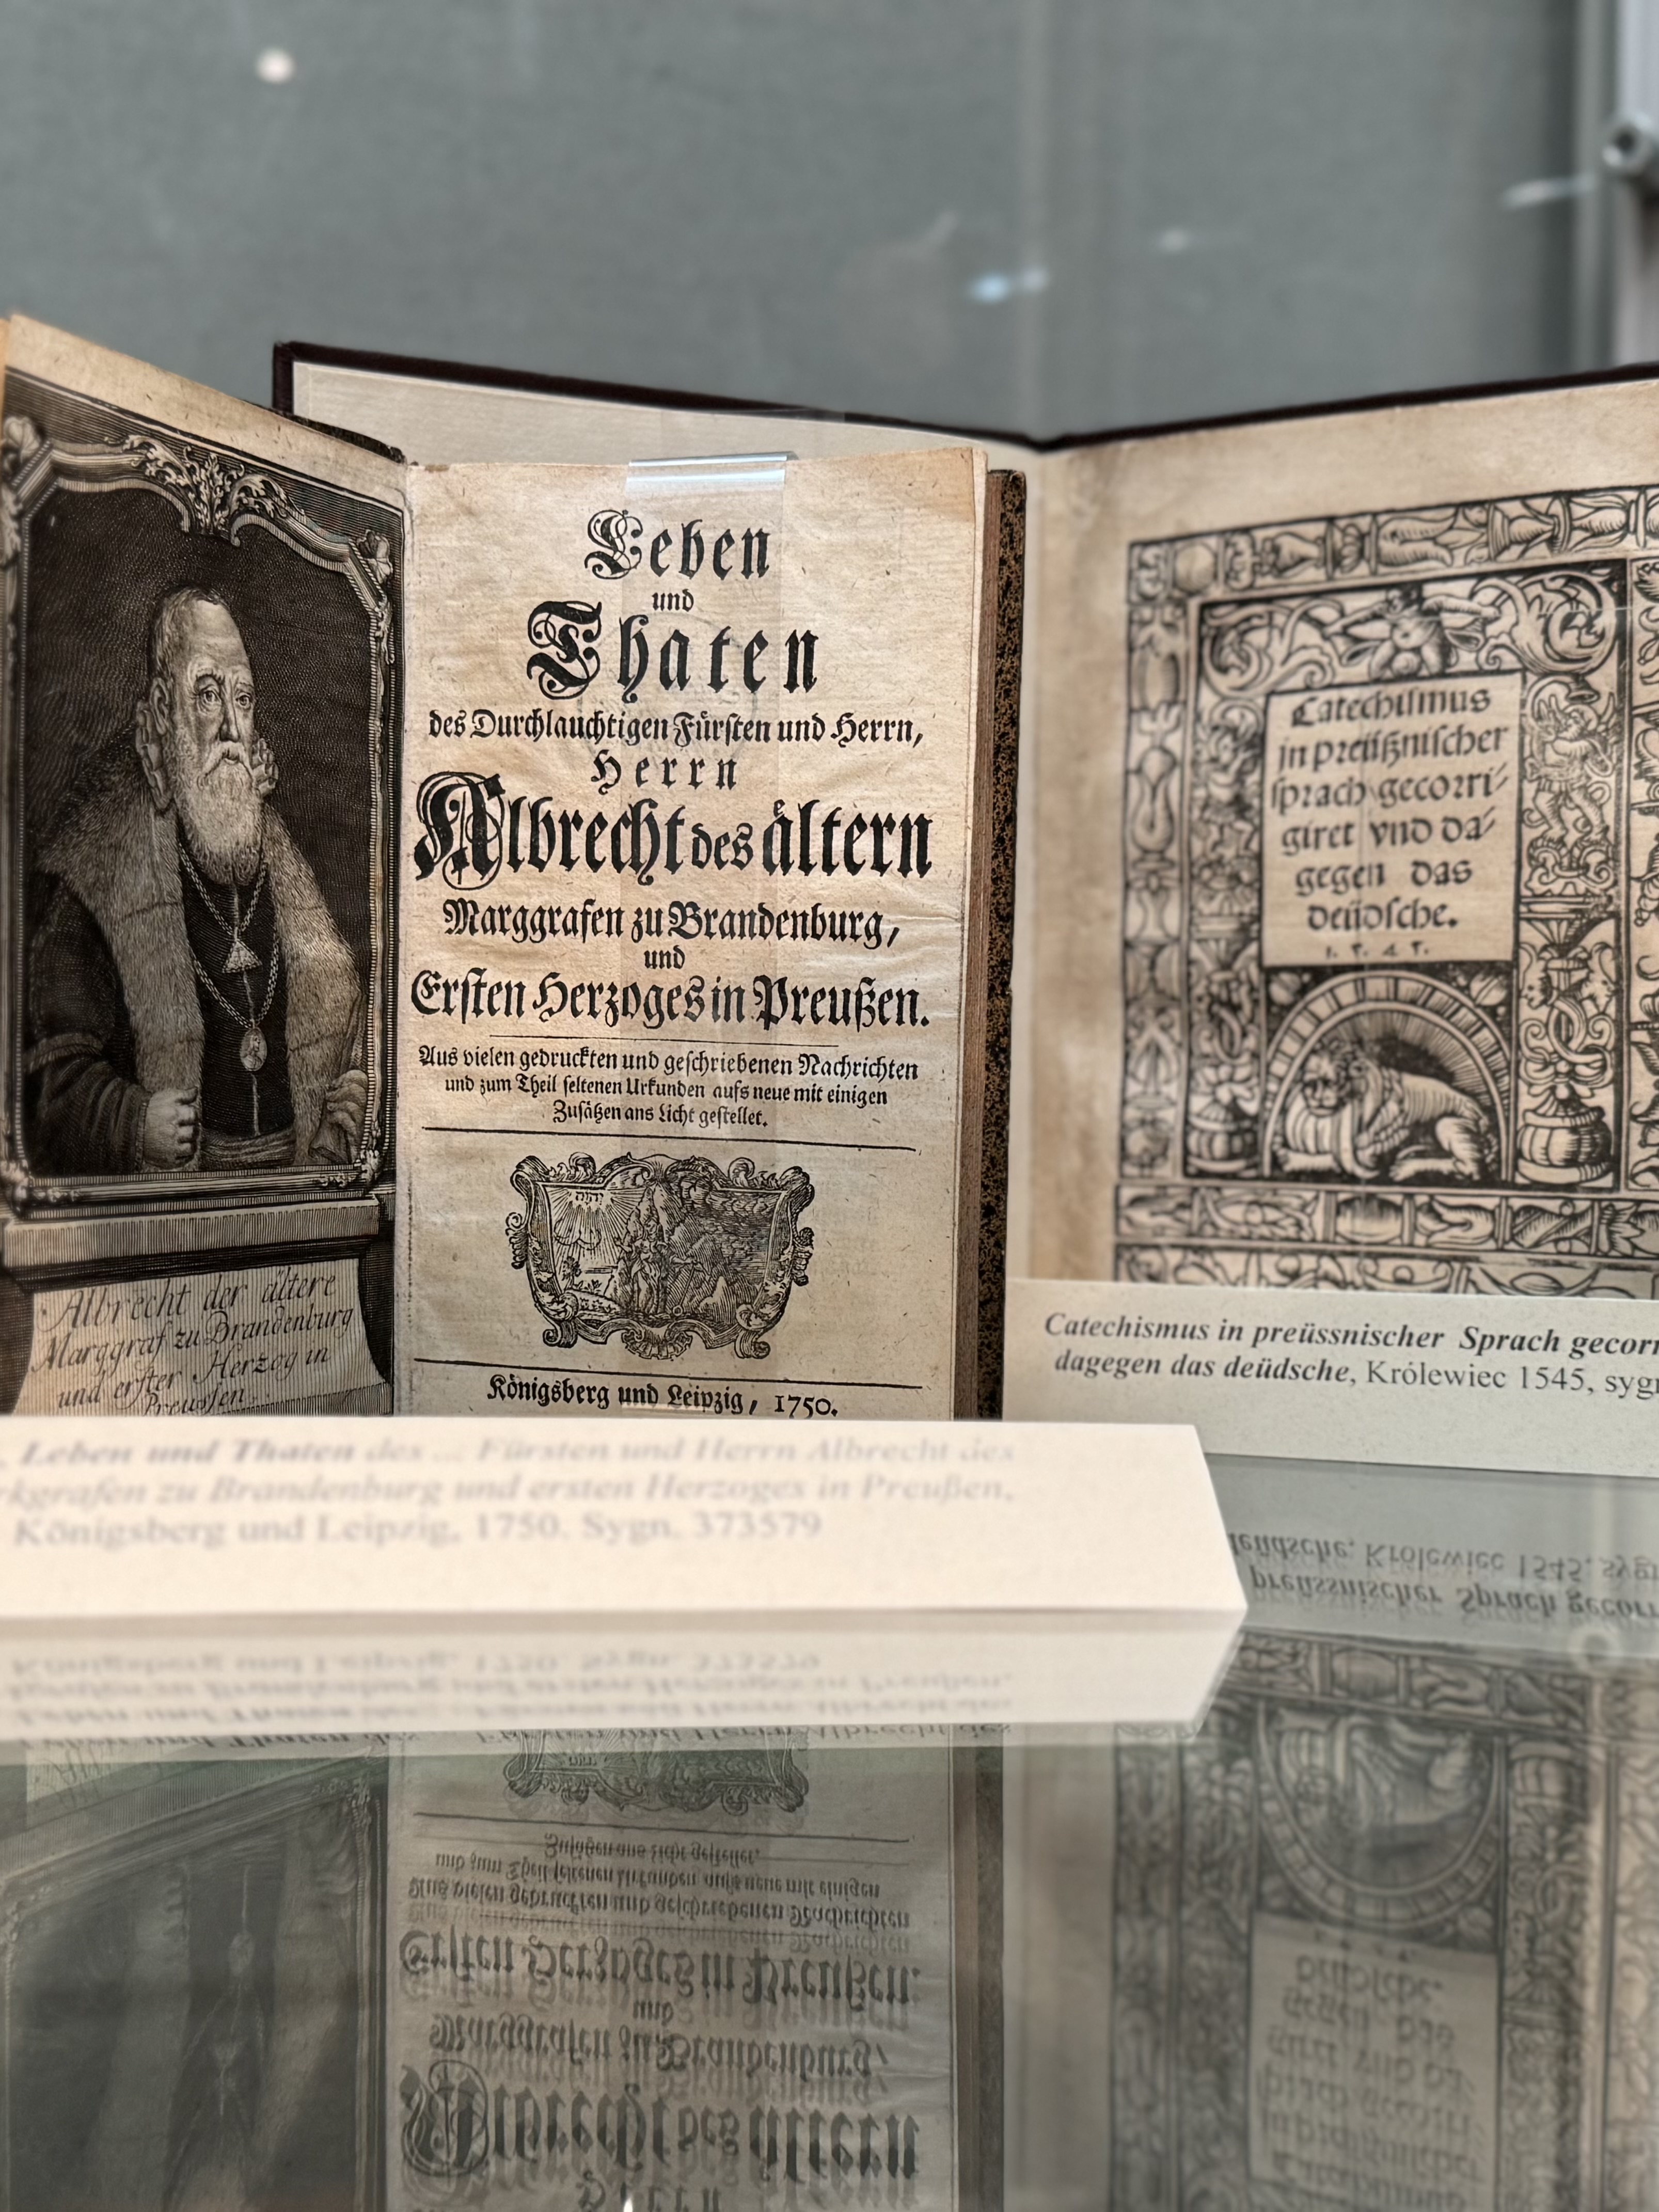 Leben
und
Thaten
des Durchlauchtigen Fürsten und Herrn,
Herrn
Albrecht des ältern
Marggrafen zu Brandenburg,
und
Ersten Herzoges in Preußen.
Aus vielen gedruckten und geschriebenen Nachrichten
und zum Theil seltenen Urkunden aufs neue mit einigen
Zusätzen ans Licht gestellet.
יהוה
Königsberg und Leipzig, 1750.
Albrecht der ältere
Marggraf zu Brandenburg
und erster Herzog in
Preussen
Catechismus
jn preüßnischer
sprach gecorri-
giret vnd da-
gegen das
deüdsche.
1. 5. 4 5.
Catechismus in preüssnischer Sprach gecorr
dagegen das deüdsche, Królewiec 1545, sygn
, Leben und Thaten des ... Fürsten und Herrn Albrecht des
rkgrafen zu Brandenburg und ersten Herzoges in Preußen,
Königsberg und Leipzig, 1750. Sygn. 373579